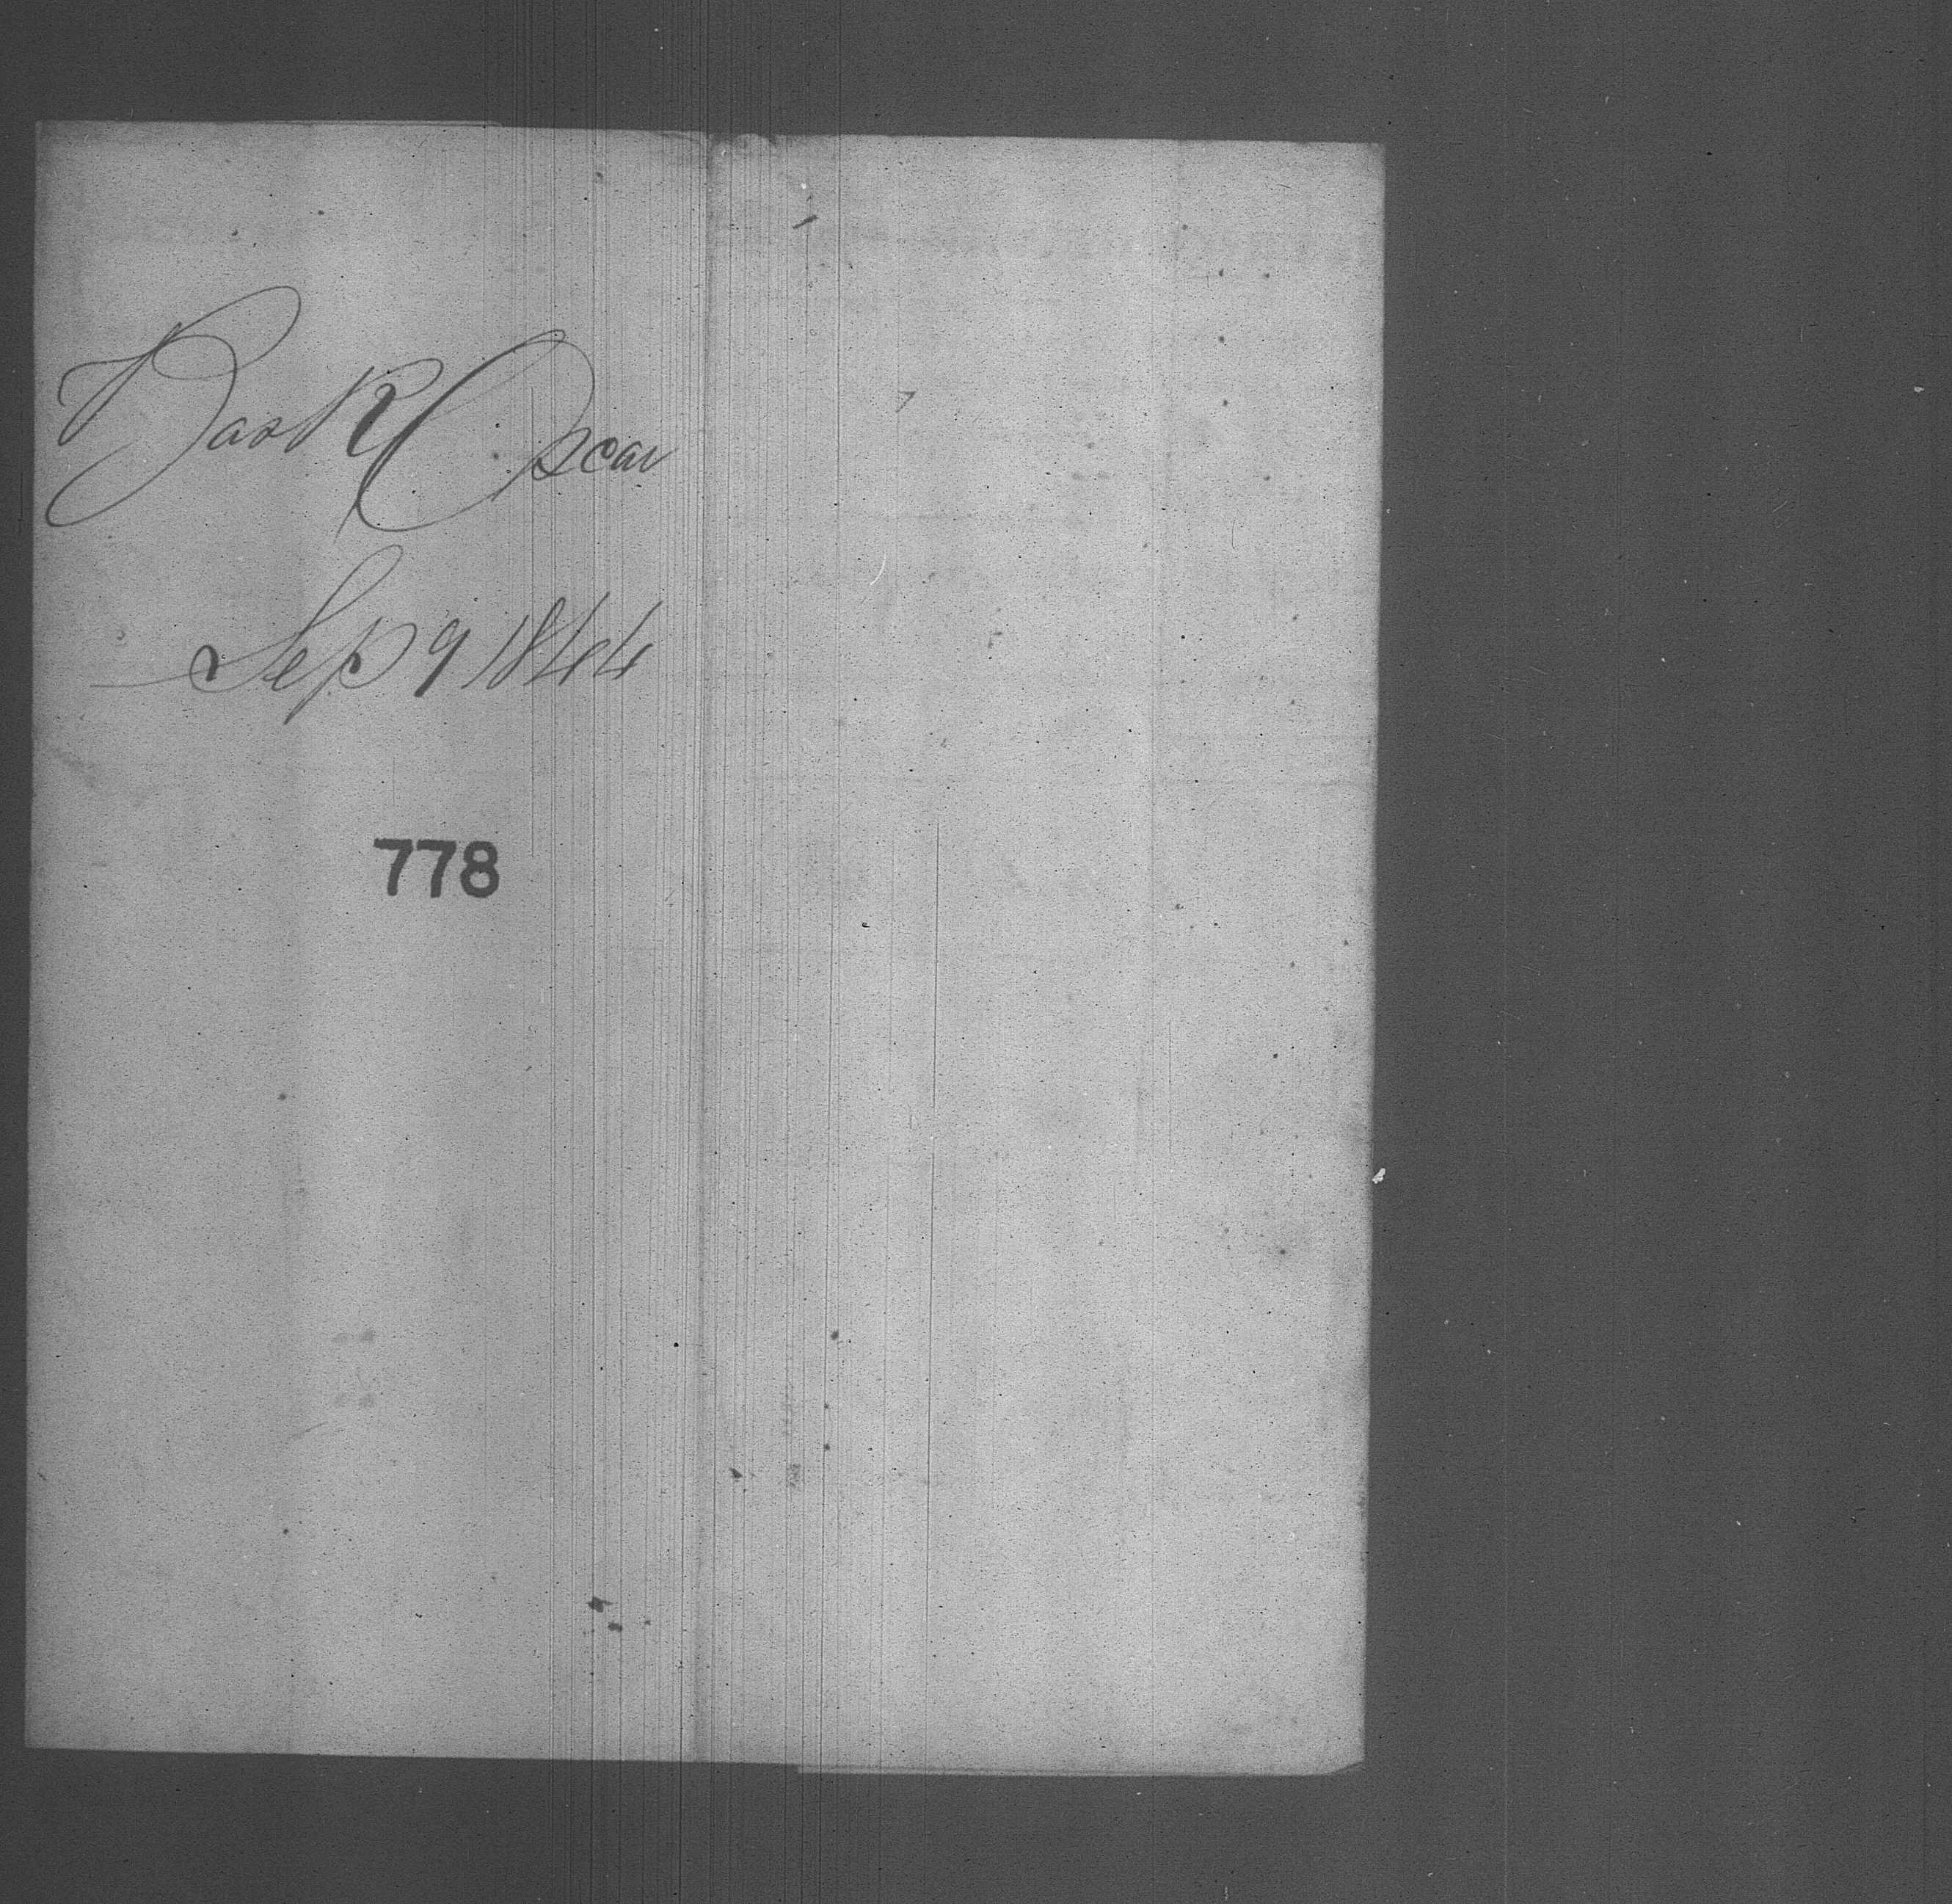 Bark Oscar
Sep 9 1844
778